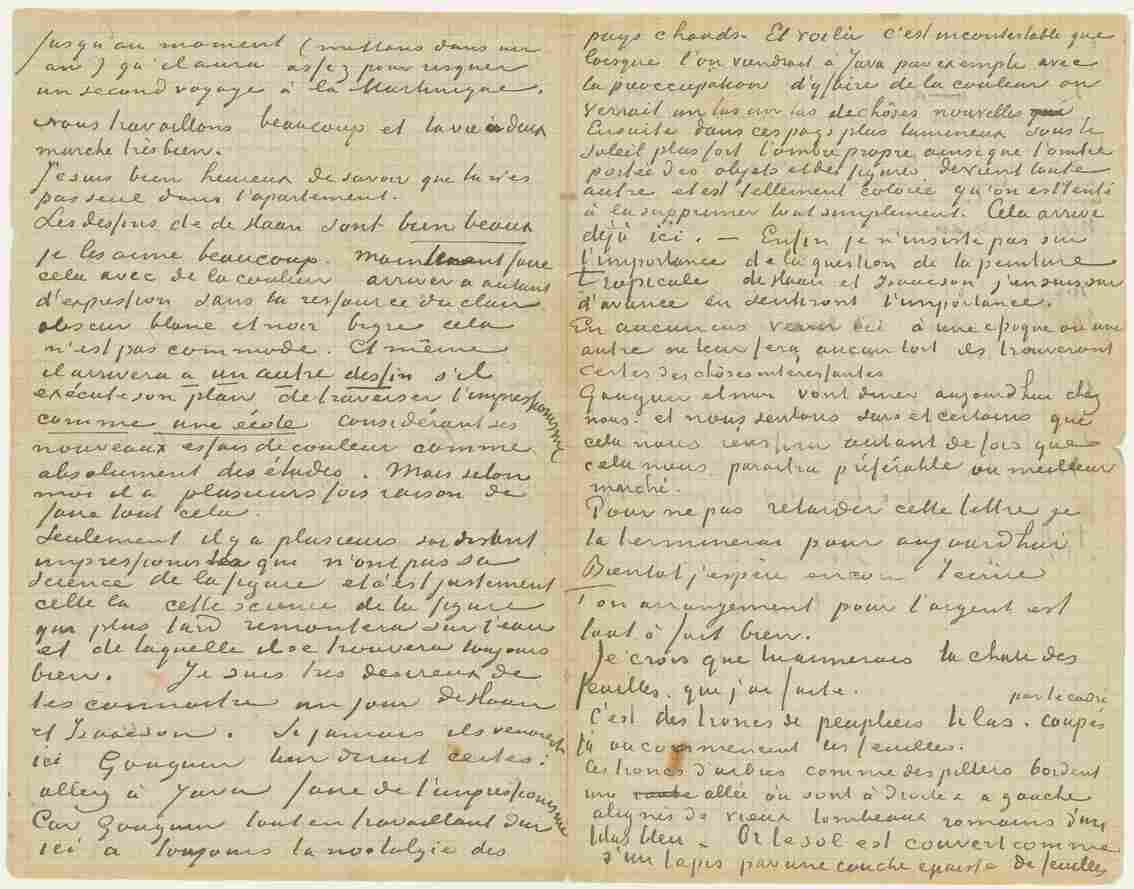 jusqu'au moment (mettons dans un
an) qu'il aura assez pour risquer
un second voyage à la Martinique.
Nous travaillons beaucoup et la vie à deux
marche très bien.
Je suis bien heureux de savoir que tu n'es
pas seul dans l'apartement.
Les dessins de de Haan sont bien beaux
je les aime beaucoup. Maintenant faire
cela avec de la couleur arriver à autant
d'expression sans la ressource du clair
obscur blanc et noir bigre cela
n'est pas commode. Et même
il arrivera à un autre dessin s'il
exécute son plan de traverser l'impressionisme
comme une école considérant ses
nouveaux essais de couleur comme
absolument des études. Mais selon
moi il a plusieurs fois raison de
faire tout cela.
Seulement il y a plusieurs soi disant
impressionistes qui n'ont pas sa
science de la figure et c'est justement
celle la cette science de la figure
qui plus tard remontera sur l'eau
et de laquelle il se trouvera toujours
bien. Je suis très desireux de
les connaitre un jour de Haan
et Isaäcson. Si jamais ils venaient
ici Gauguin leur dirait certes:
allez à Java faire de l'impressionisme
Car Gauguin tout en travaillant dur
ici a toujours la nostalgie des
pays chauds. Et voilà c'est incontestable que
lorsque l'on viendrait à Java par exemple avec
la préoccupation d'y faire de la couleur on
verrait un tas de choses nouvelles
Ensuite dans ces pays plus lumineux sous le
soleil plus fort l'ombre propre ainsi que l'ombre
portée des objets et des figures devient toute
autre et est tellement colorée qu'on est tenté
à la supprimer tout simplement. Cela arrive
déjà ici. — Enfin je n'insiste pas sur
l'importance de la question de la peinture
tropicale de Haan et Isaacson j'en suis sur
d'avance en sentiront l'importance.
En aucun cas venir ici à une epoque ou une
autre ne leur fera aucun tort ils trouveront
certes des chôses intéressantes
Gauguin et moi vont diner aujourd'hui chez
nous. et nous sentons surs et certains que
cela nous autant de fois que
cela nous paraitra préférable ou meilleur
marché.
Pour ne pas retarder cette lettre je
la terminerai pour aujourd'hui
Bientot j'espère encore t'écrire
Ton arrangement pour l'argent est
tout à fait bien.
Je crois que tu aimerais la chute des
feuilles que j'ai faite.
C'est des troncs de peupliers lilas coupés par le cadre
là où commencent les feuilles.
Ces troncs d'arbres comme des piliers bordent
une allée où sont à droite & à gauche
alignés de vieux tombeaux romains d'un
lilas bleu. Or le sol est couvert comme
d'un tapis par une couche épaisse de feuilles